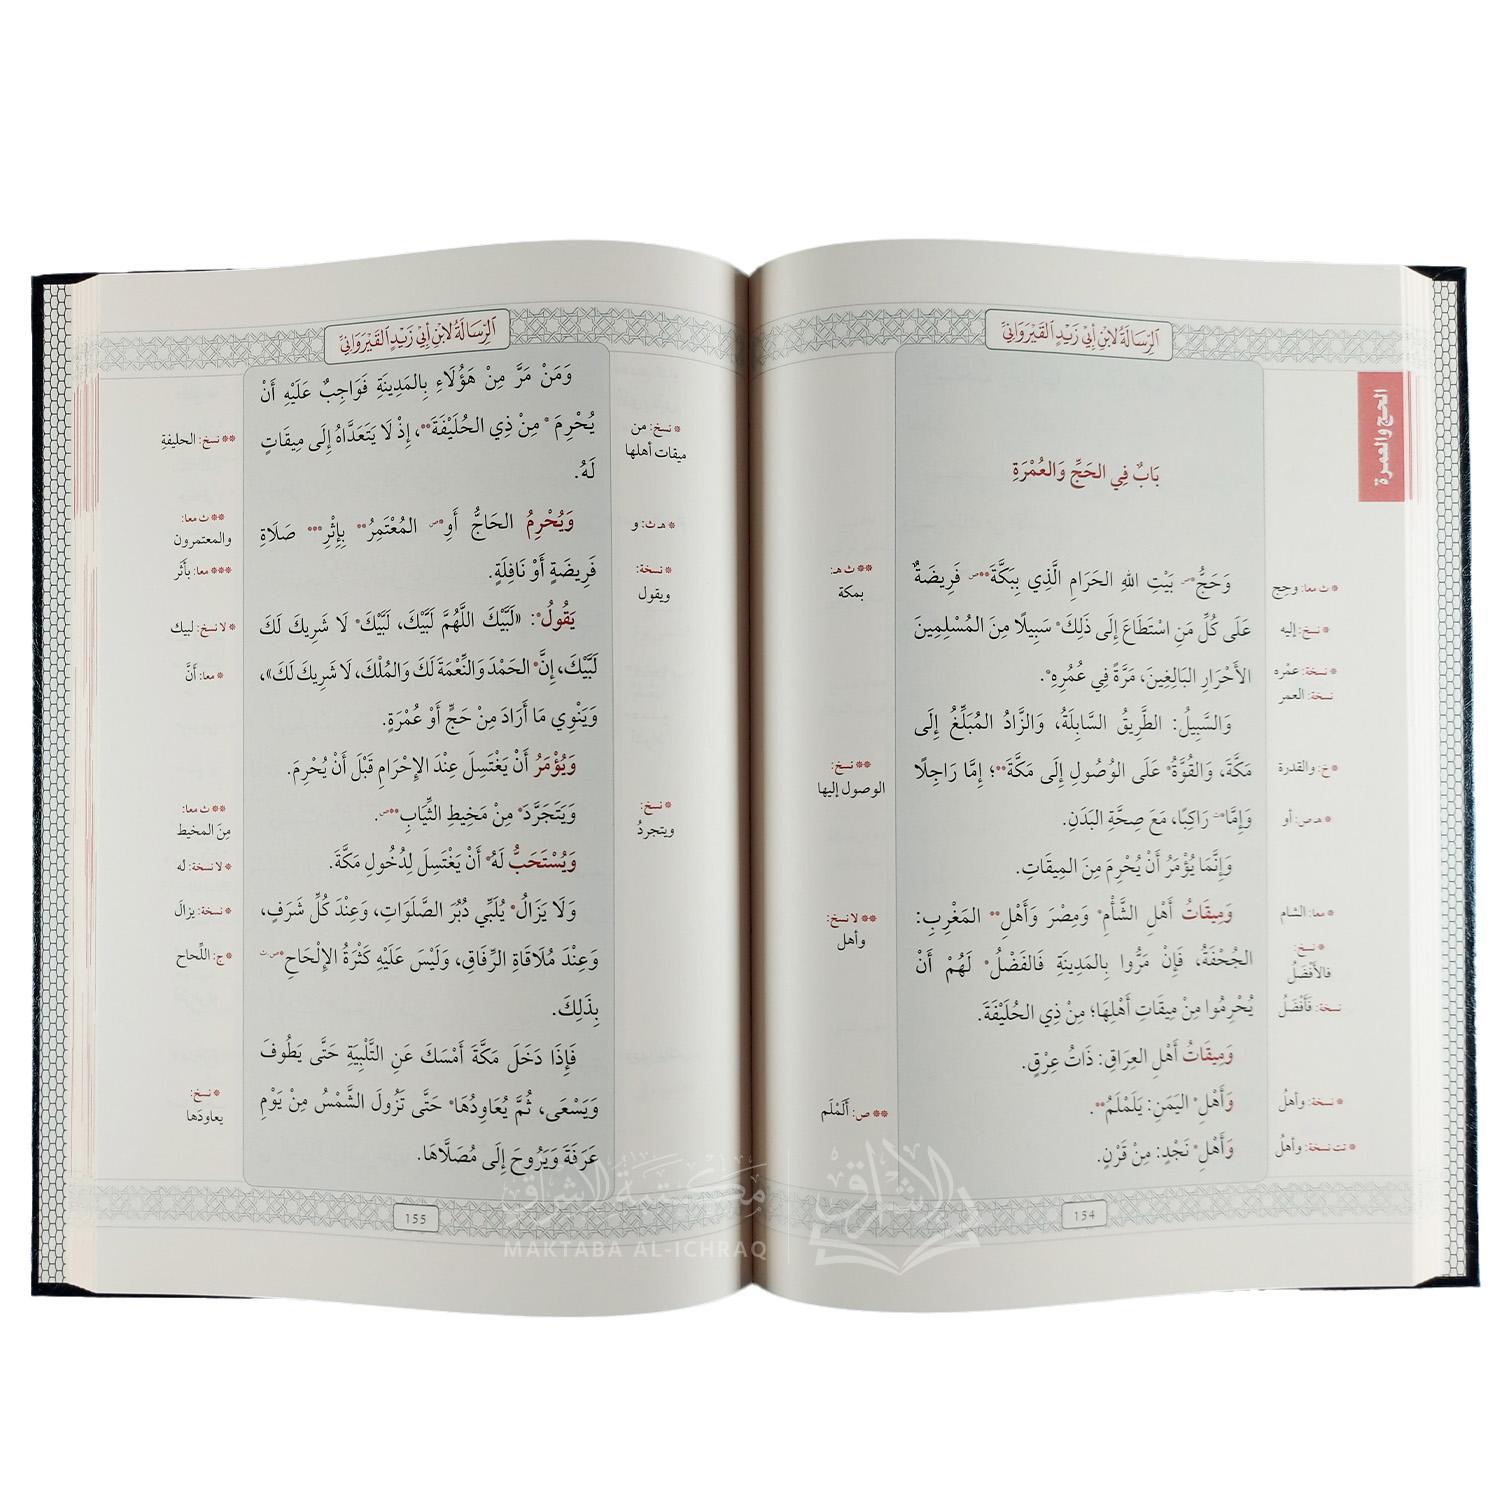 الرِّسَالَةُ لِابْنِ أَبِي زَيْدٍ القَيْرَوَانِيِّ
الحج والعمرة
بَابٌ فِي الحَجِّ وَالعُمْرَةِ
وَحَجُّ*ص بَيْتِ اللهِ الحَرَامِ الَّذِي بِبَكَّةَ**ص فَرِيضَةٌ
عَلَى كُلِّ مَنِ اسْتَطَاعَ إِلَى ذَلِكَ* سَبِيلًا مِنَ المُسْلِمِينَ
الأَحْرَارِ البَالِغِينَ، مَرَّةً فِي عُمُرِهِ*.
وَالسَّبِيلُ: الطَّرِيقُ السَّابِلَةُ، وَالزَّادُ المُبَلِّغُ إِلَى
مَكَّةَ، وَالقُوَّةُ* عَلَى الوُصُولِ إِلَى مَكَّةَ**؛ إِمَّا رَاجِلًا
وَإِمَّا* رَاكِبًا، مَعَ صِحَّةِ البَدَنِ.
وَإِنَّمَا يُؤْمَرُ أَنْ يُحْرِمَ مِنَ المِيقَاتِ.
وَمِيقَاتُ أَهْلِ الشَّأْمِ* وَمِصْرَ وَأَهْلِ** المَغْرِبِ:
الجُحْفَةُ، فَإِنْ مَرُّوا بِالمَدِينَةِ فَالفَضْلُ* لَهُمْ أَنْ
يُحْرِمُوا مِنْ مِيقَاتِ أَهْلِهَا؛ مِنْ ذِي الحُلَيْفَةَ.
وَمِيقَاتُ أَهْلِ العِرَاقِ: ذَاتُ عِرْقٍ.
وَأَهْلِ* اليَمَنِ: يَلَمْلَمُ**.
وَأَهْلِ* نَجْدٍ: مِنْ قَرْنٍ.
* ث معا: وحِج
* نسخ: إليه
* نسخة: عمْره
نسخة: العمر
* خ: والقدرة
* هـ ص: أو
* معا: الشام
* نسخ:
فالأَفْضَلُ
نسخة: فَأَفْضَلُ
* نسخة: وأهلُ
* تت نسخة: وأهلُ
** ث هـ:
بمكة
** نسخ:
الوصول إليها
** لا نسخ:
وأهل
** ص: أَلَمْلَم
154
الرِّسَالَةُ لِابْنِ أَبِي زَيْدٍ القَيْرَوَانِيِّ
وَمَنْ مَرَّ مِنْ هَؤُلَاءِ بِالمَدِينَةِ فَوَاجِبٌ عَلَيْهِ أَنْ
يُحْرِمَ * مِنْ ذِي الحُلَيْفَةَ**، إِذْ لَا يَتَعَدَّاهُ إِلَى مِيقَاتٍ
لَهُ.
وَيُحْرِمُ الحَاجُّ أَوِ*ص المُعْتَمِرُ** بِإِثْرِ*** صَلَاةِ
فَرِيضَةٍ أَوْ نَافِلَةٍ.
يَقُولُ*: «لَبَّيْكَ اللَّهُمَّ لَبَّيْكَ، لَبَّيْكَ* لَا شَرِيكَ لَكَ
لَبَّيْكَ، إِنَّ* الحَمْدَ وَالنِّعْمَةَ لَكَ وَالمُلْكَ، لَا شَرِيكَ لَكَ»،
وَيَنْوِي مَا أَرَادَ مِنْ حَجٍّ أَوْ عُمْرَةٍ.
وَيُؤْمَرُ أَنْ يَغْتَسِلَ عِنْدَ الإِحْرَامِ قَبْلَ أَنْ يُحْرِمَ.
وَيَتَجَرَّدَ* مِنْ مَخِيطِ الثِّيَابِ**ص.
وَيُسْتَحَبُّ لَهُ* أَنْ يَغْتَسِلَ لِدُخُولِ مَكَّةَ.
وَلَا يَزَالُ* يُلَبِّي دُبُرَ الصَّلَوَاتِ، وَعِنْدَ كُلِّ شَرَفٍ،
وَعِنْدَ مُلَاقَاةِ الرِّفَاقِ، وَلَيْسَ عَلَيْهِ كَثْرَةُ الإِلْحَاحِ*ص ث
بِذَلِكَ.
فَإِذَا دَخَلَ مَكَّةَ أَمْسَكَ عَنِ التَّلْبِيَةِ حَتَّى يَطُوفَ
وَيَسْعَى، ثُمَّ يُعَاوِدُهَا* حَتَّى تَزُولَ الشَّمْسُ مِنْ يَوْمِ
عَرَفَةَ وَيَرُوحَ إِلَى مُصَلَّاهَا.
* نسخ: من
ميقات أهلها
* هـ ث: و
* نسخة:
ويقول
* نسخ:
ويتجردُ
** نسخ: الحليفةِ
** ث معا:
والمعتمرون
*** معا: بأَثَر
* لا نسخ: لبيك
* معا: أنَّ
** ث معا:
مِنَ المخيط
* لا نسخة: له
* نسخة: يزالَ
* ج: اللِّحاح
* نسخ:
يعاودَها
155
مكتبة الإشراق
الإشراق
MAKTABA AL-ICHRAQ